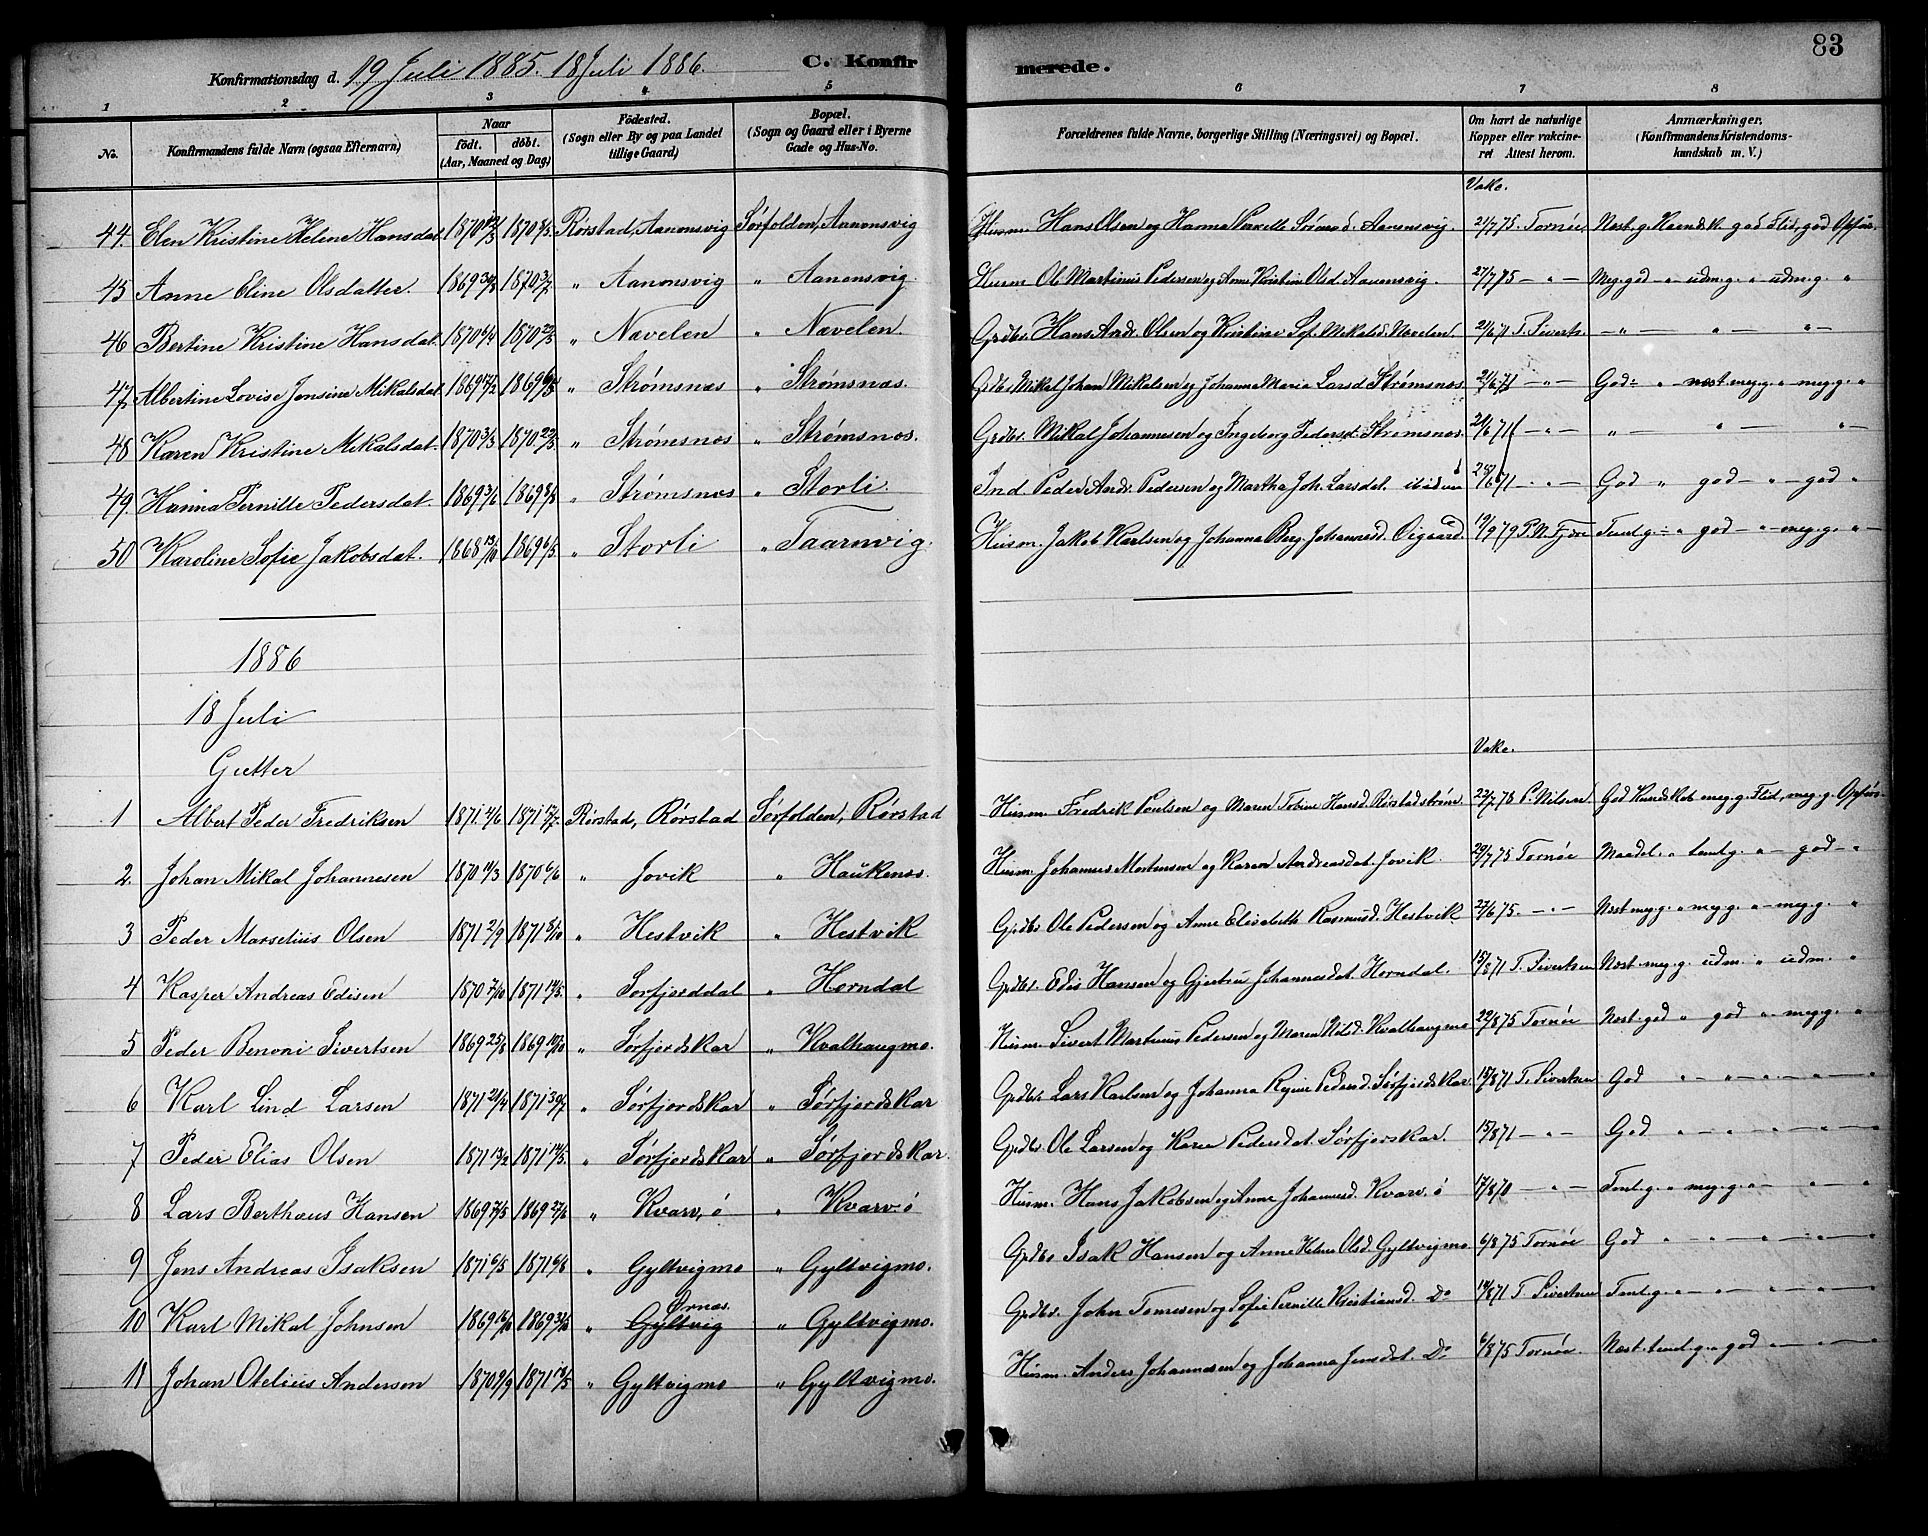 83
Konfirmationsdag d. 19 Juli 1885. 18 Juli 1886. C. Konfirmerede.
1 2 3 4 5 6 7 8
No. Konfirmandens fulde Navn (ogsaa Efternavn) Naar født. døbt. (Aar, Maaned og Dag) Fødested. (Sogn eller By og paa Landet tillige Gaard) Bopæl. (Sogn og Gaard eller i Byerne Gade og Hus-No. Forældrenes fulde Navne, borgerlige Stilling (Næringsvei) og Bopæl. Om havt de naturlige Kopper eller vakcineret Attest herom. Anmærkninger. (Konfirmandens Kristendomskundskab m. V.)
Vakc.
44. Elen Kristine Helene Hansdat. 1870 12/3 1870 8/5 Rørstad, Aanonsvig Sørfolden, Aanonsvig Husm. Hans Olsen og Hanna Pernille Aanensvig. 21/7 75. Tornøe Næst. g. Kundsk. god Flid, god Opfør.
45 Anne Eline Olsdatter. 1869 30/8 1870 3/7 " Aanonsvig " Aanensvig. Husm Ole Martinus Pedersen og Anne Kristine Olsd. Aanensvig. 27/7 75 — " — Meg. god " udm. g. " udm. g. "
46 Bertine Kristine Hansdat. 1870 6/4 1870 22/5 " Nævelen " Nævelen. Grdbr. Hans Andr. Olsen og Kristine Sof. Mikalsd. Nævelen. 21/6 71 T. Sivertsen — " — " — " —
47 Albertine Lovise Jensine Mikalsdat 1869 17/2 1869 6/5 " Strømsnæs " Strømsnæs. Grdbr. Mikal Johan Mikelsen og Johanna Maria Larsd Strømsnæs. 21/6 71 — " — God " næst meg. g. " meg. g. "
48 Karen Kristine Mikalsdat. 1870 3/3 1870 22/5 " Strømsnæs " Strømsnæs. Grdbr. Mikal Johannesen og Ingeborg Pedersd. Strømsnæs. 21/6 71 — " — " — " — " —
49. Hanna Pernille Pedersdat. 1869 3/6 1869 8/8 " Strømsnæs " Storli. Ind Peder Andr. Pedersen og Martha Joh. Larsdat. ibidem 28/6 71 — " — God " god — " — god "
50 Karoline Sofie Jakobsdat. 1868 13/10 1869 6/5 " Storli " Taarnvig. Husm. Jakob Karlsen og Johanna Berg. Johannesd. Øigaard 19/9 79 P. N. Temlig. " god — " — meg. g. "
1886
18 Juli
Gutter
Vakc.
1 Albert Peder Fredriksen 1871 4/6 1871 17/7. Rørstad, Rørstad Sørfolden, Rørstad Husm. Fredrik Poulsen og Maren Tobine Hansd. Rørstadstrøm 22/7 78 P. Nilsen God Kundskab meg. g. Flid, meg. g. Opførs.
2. Johan Mikal Johannesen 1870 11/3 1870 6/6 " Jovik " Haukenæs. Husm. Johannes Mortensen og Karen Andreasdat. Jovik. 29/7 75 Tornøe Maadel. " temlig. " — god — "
3 Peder Marselius Olsen 1871 2/9 1871 8/10 " Hestvik " Hestvik Grdbr Ole Pedersen og Anne Elisabeth Rasmusd. Hestvik 27/6 75. — " — Næst meg. g. " meg. g. " — meg. g. "
4 Kasper Andreas Edisen 1870 7/10 1871 14/5. " Sørfjorddal " Horndal Grdbr. Edis Hansen og Gjertru Johannesdat. Horndal. 15/8 71 T. Sivertsen Næst. meg. g. udm. " udm. "
5 Peder Benoni Sivertsen 1869 25/8 1869 10/10 " Sørfjordskar " Kvalhaugmo. Husm. Sivert Martinus Pedersen og Maren Nilsd. Kvalhaugmo 22/8 75 Tornøe Næst. god " god " meg. g. "
6 Karl Lind Larsen 1871 21/4 1871 30/7 " Sørfjordskar " Sørfjordskar Grdbr. Lars Karlsen og Johanna Regine Pedersd. Sørfjordskar. 15/8 71 T. Sivertsen God " — " — " — " —
7 Peder Elias Olsen 1871 13/2 1871 14/5. " Sørfjordskar " Sørfjordskar. Grdbr. Ole Larsen og Karen Pedersdat. Sørfjorskar. 15/8 71 — " — God " — " — " — " —
8 Lars Berthæus Hansen 1869 7/5 1869 27/6 " Kvarv, ø " Kvarv ø Husm. Hans Jakobsen og Anne Johannesd. Kvarv. ø 17/8 70 — " — Temlig. " meg. g. " — " — "
9 Jens Andreas Isaksen 1871 6/5 1871 6/8 " Gyltvigmo " Gyltvigmo. Grdbr. Isak Hansen og Anne Helene Olsd. Gyltvigmo 6/8 75 Tornøe God " " — " — " —
10 Karl Mikal Johnsen 1869 1869 " Ørnæs. Gyltvig " Gyltvigmo. Grdbr. John Tomesen og Sofie Pernille Kristiansd. Do 14/8 71 T. Sivertsen Temlig. " — " — " — " —
11 Johan Otelius Andersen 1870 9/9 1871 14/5 " Gyltvigmo " Gyltvigmo. Husm. Anders Johannesen og Johanna Jensdat. Do 6/8 75 Tornøe. Næst. temlig. " god — " — " —